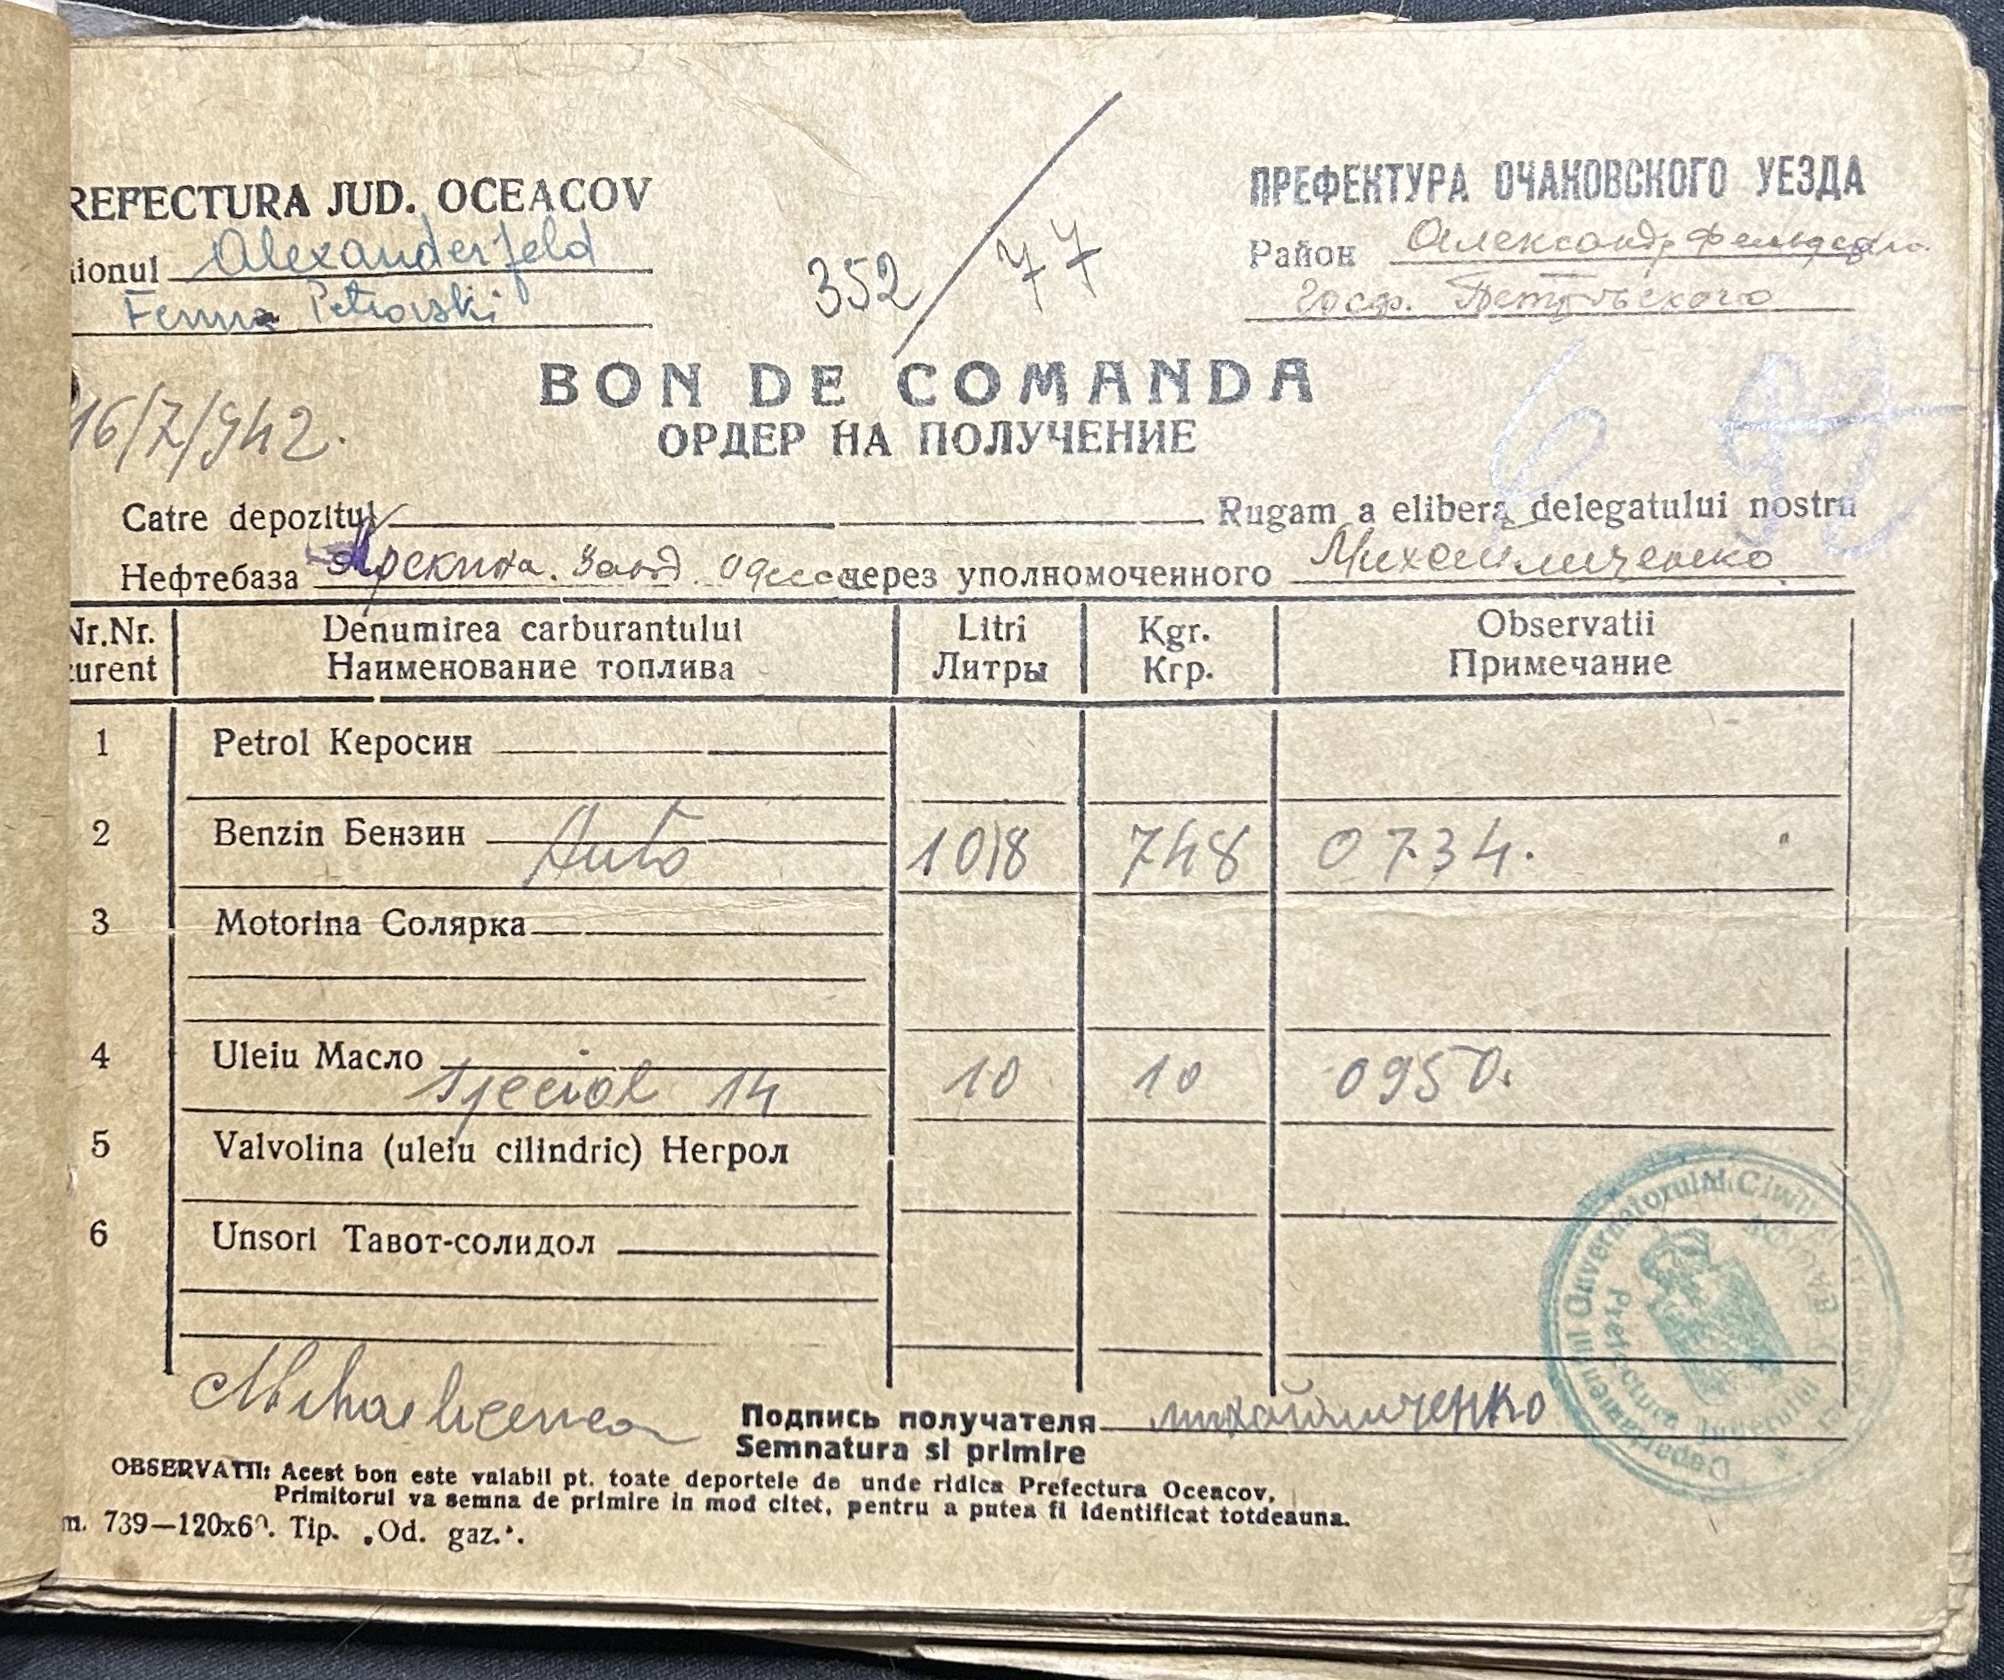 REFECTURA JUD. OCEACOV
ionul Alexanderfeld
Ferma Petrovski
352/77
ПРЕФЕКТУРА ОЧАКОВСКОГО УЕЗДА
Район
Госф.
16/7/942.
BON DE COMANDA
ОРДЕР НА ПОЛУЧЕНИЕ
Catre depozitul Rugam a elibera delegatului nostru
Нефтебаза через уполномоченного
Nr.Nr. Denumirea carburantului Litri Kgr. Observatii
curent Наименование топлива Литры Кгр. Примечание
1 Petrol Керосин
2 Benzin Бензин Auto 1018 748 0734.
3 Motorina Солярка
4 Uleiu Масло
special 14 10 10 0950.
5 Valvolina (uleiu cilindric) Негрол
6 Unsori Тавот-солидол
Подпись получателя
Semnatura si primire
OBSERVATII: Acest bon este valabil pt. toate deportele de unde ridica Prefectura Oceacov,
Primitorul va semna de primire in mod citet, pentru a putea fi identificat totdeauna.
m. 739—120x60. Tip. „Od. gaz.".
Departamentul Guvernatorului Civil
Prefectura Judetului